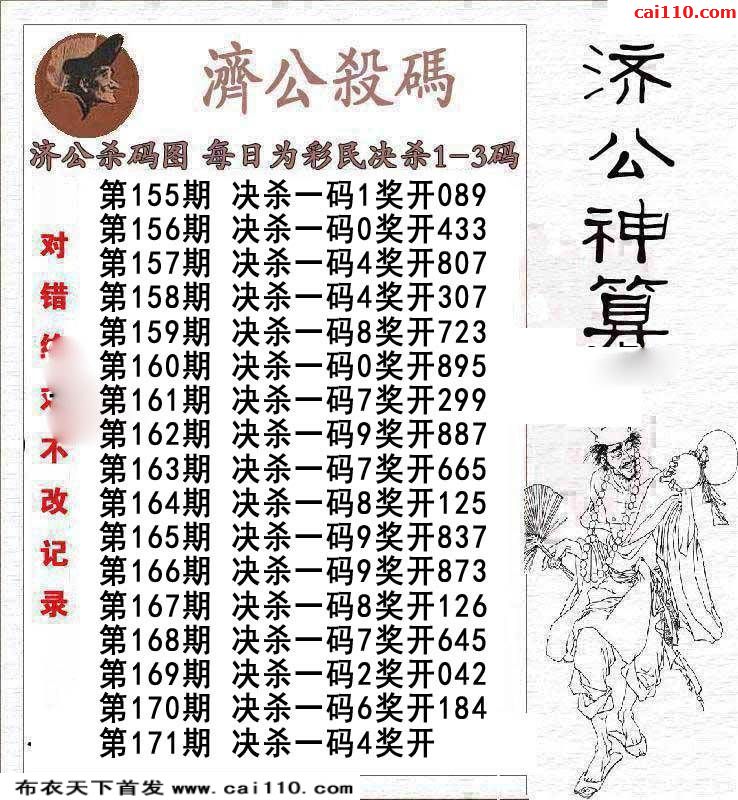 cai110.com
濟公殺碼
济公杀码图 每日为彩民决杀1-3码
第155期 决杀一码1奖开089
第156期 决杀一码0奖开433
第157期 决杀一码4奖开807
第158期 决杀一码4奖开307
第159期 决杀一码8奖开723
第160期 决杀一码0奖开895
第161期 决杀一码7奖开299
第162期 决杀一码9奖开887
第163期 决杀一码7奖开665
第164期 决杀一码8奖开125
第165期 决杀一码9奖开837
第166期 决杀一码9奖开873
第167期 决杀一码8奖开126
第168期 决杀一码7奖开645
第169期 决杀一码2奖开042
第170期 决杀一码6奖开184
第171期 决杀一码4奖开
对错不改记录
济公神算
布衣天下首发 www.cai110.com